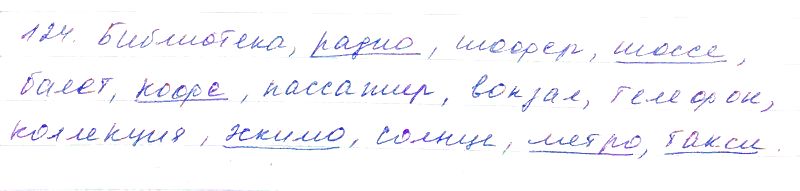 124. Библиотека, радио, шофёр, шоссе,
балет, кофе, пассажир, вокзал, телефон,
коллекция, эскимо, солнце, метро, такси.